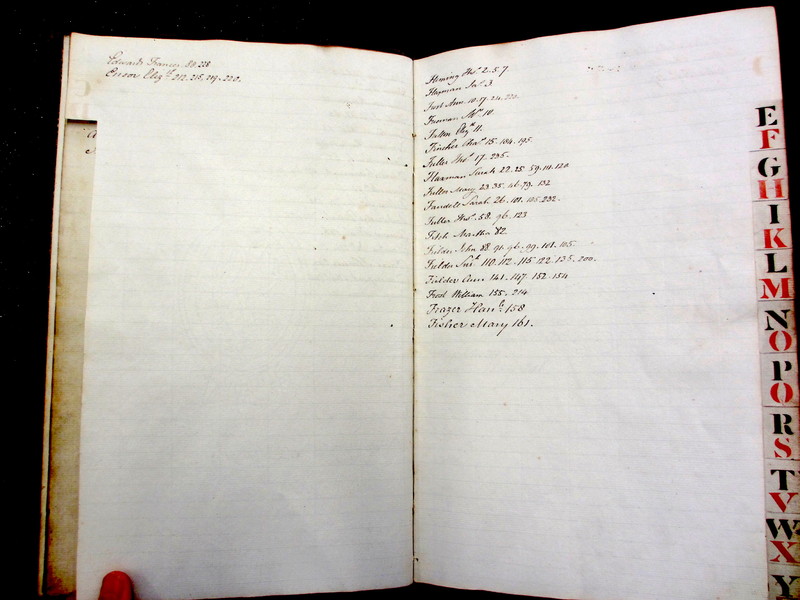 Edwards Frances 218
Ensor Eliz.th 212. 215. 219. 220.
Fleming Ths. 2. 5. 7
Flaxman Ja.s 3.
Frost Ann. 10. 17. 24. 220.
Freeman 10.
Fulton Eliz.th 11.
Fincher Cha.s 15. 184. 195.
Fuller Tho.s 17. 235.
Flaxman Sarah 22. 25. 59. 111. 120
Fuller Mary 23. 35. 46. 79. 132
Sarah 26. 101. 105. 232.
Fuller 58. 96. 123
Fitch Martha 82.
Fielder John 88. 91. 96. 99. 101. 105.
Fielder 110. 112. 115. 122. 135. 200.
Fielder Ann 141. 147. 152. 154
Frost William 155. 214
Frazer Han.h 158
Fisher Mary 161.
E
F
G
H
I
K
L
M
N
O
P
Q
R
S
T
V
W
X
Y